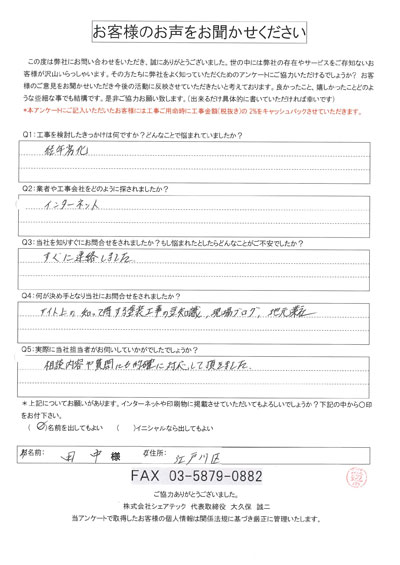 お客様のお声をお聞かせください
この度は弊社にお問い合わせをいただき、誠にありがとうございました。世の中には弊社の存在やサービスをご存知ないお
客様が沢山いらっしゃいます。その方たちに弊社をよく知っていただくためのアンケートにご協力いただけるでしょうか？お客
様のご意見をお聞かせいただき今後の活動に反映させていただきたいと考えております。良かったこと、嬉しかったことどのよ
うな些細な事でも結構です。是非ご協力お願い致します。（出来るだけ具体的に書いていただければ幸いです）
*本アンケートにご記入いただいたお客様には工事ご用命時に工事金額（税抜き）の2％をキャッシュバックさせていただきます。
Q1：工事を検討したきっかけは何ですか？どんなことで悩まれていましたか？
経年劣化
Q2：業者や工事会社をどのように探されましたか？
インターネット
Q3：当社を知りすぐにお問合せをされましたか？もし悩まれたとしたらどんなことがご不安でしたか？
すぐに連絡しました
Q4：何が決め手となり当社にお問合せをされましたか？
サイト上の 知って得する塗装工事の豆知識, 現場ブログ, 地元業者
Q5：実際に当社担当者がお伺いしていかがでしたでしょうか？
相談内容や質問にも的確に対応して頂きました.
＊上記についてお願いがあります。インターネットや印刷物に掲載させていただいてもよろしいでしょうか？下記の中から〇印
をお付下さい。
（ 〇 ）名前を出してもよい （ ）イニシャルなら出してもよい
お名前： 田中 様 お住所： 江戸川区
FAX 03-5879-0882
ご協力ありがとうございました。
株式会社シェアテック 代表取締役 大久保 誠二
当アンケートで取得したお客様の個人情報は関係法規に基づき厳正に管理いたします。